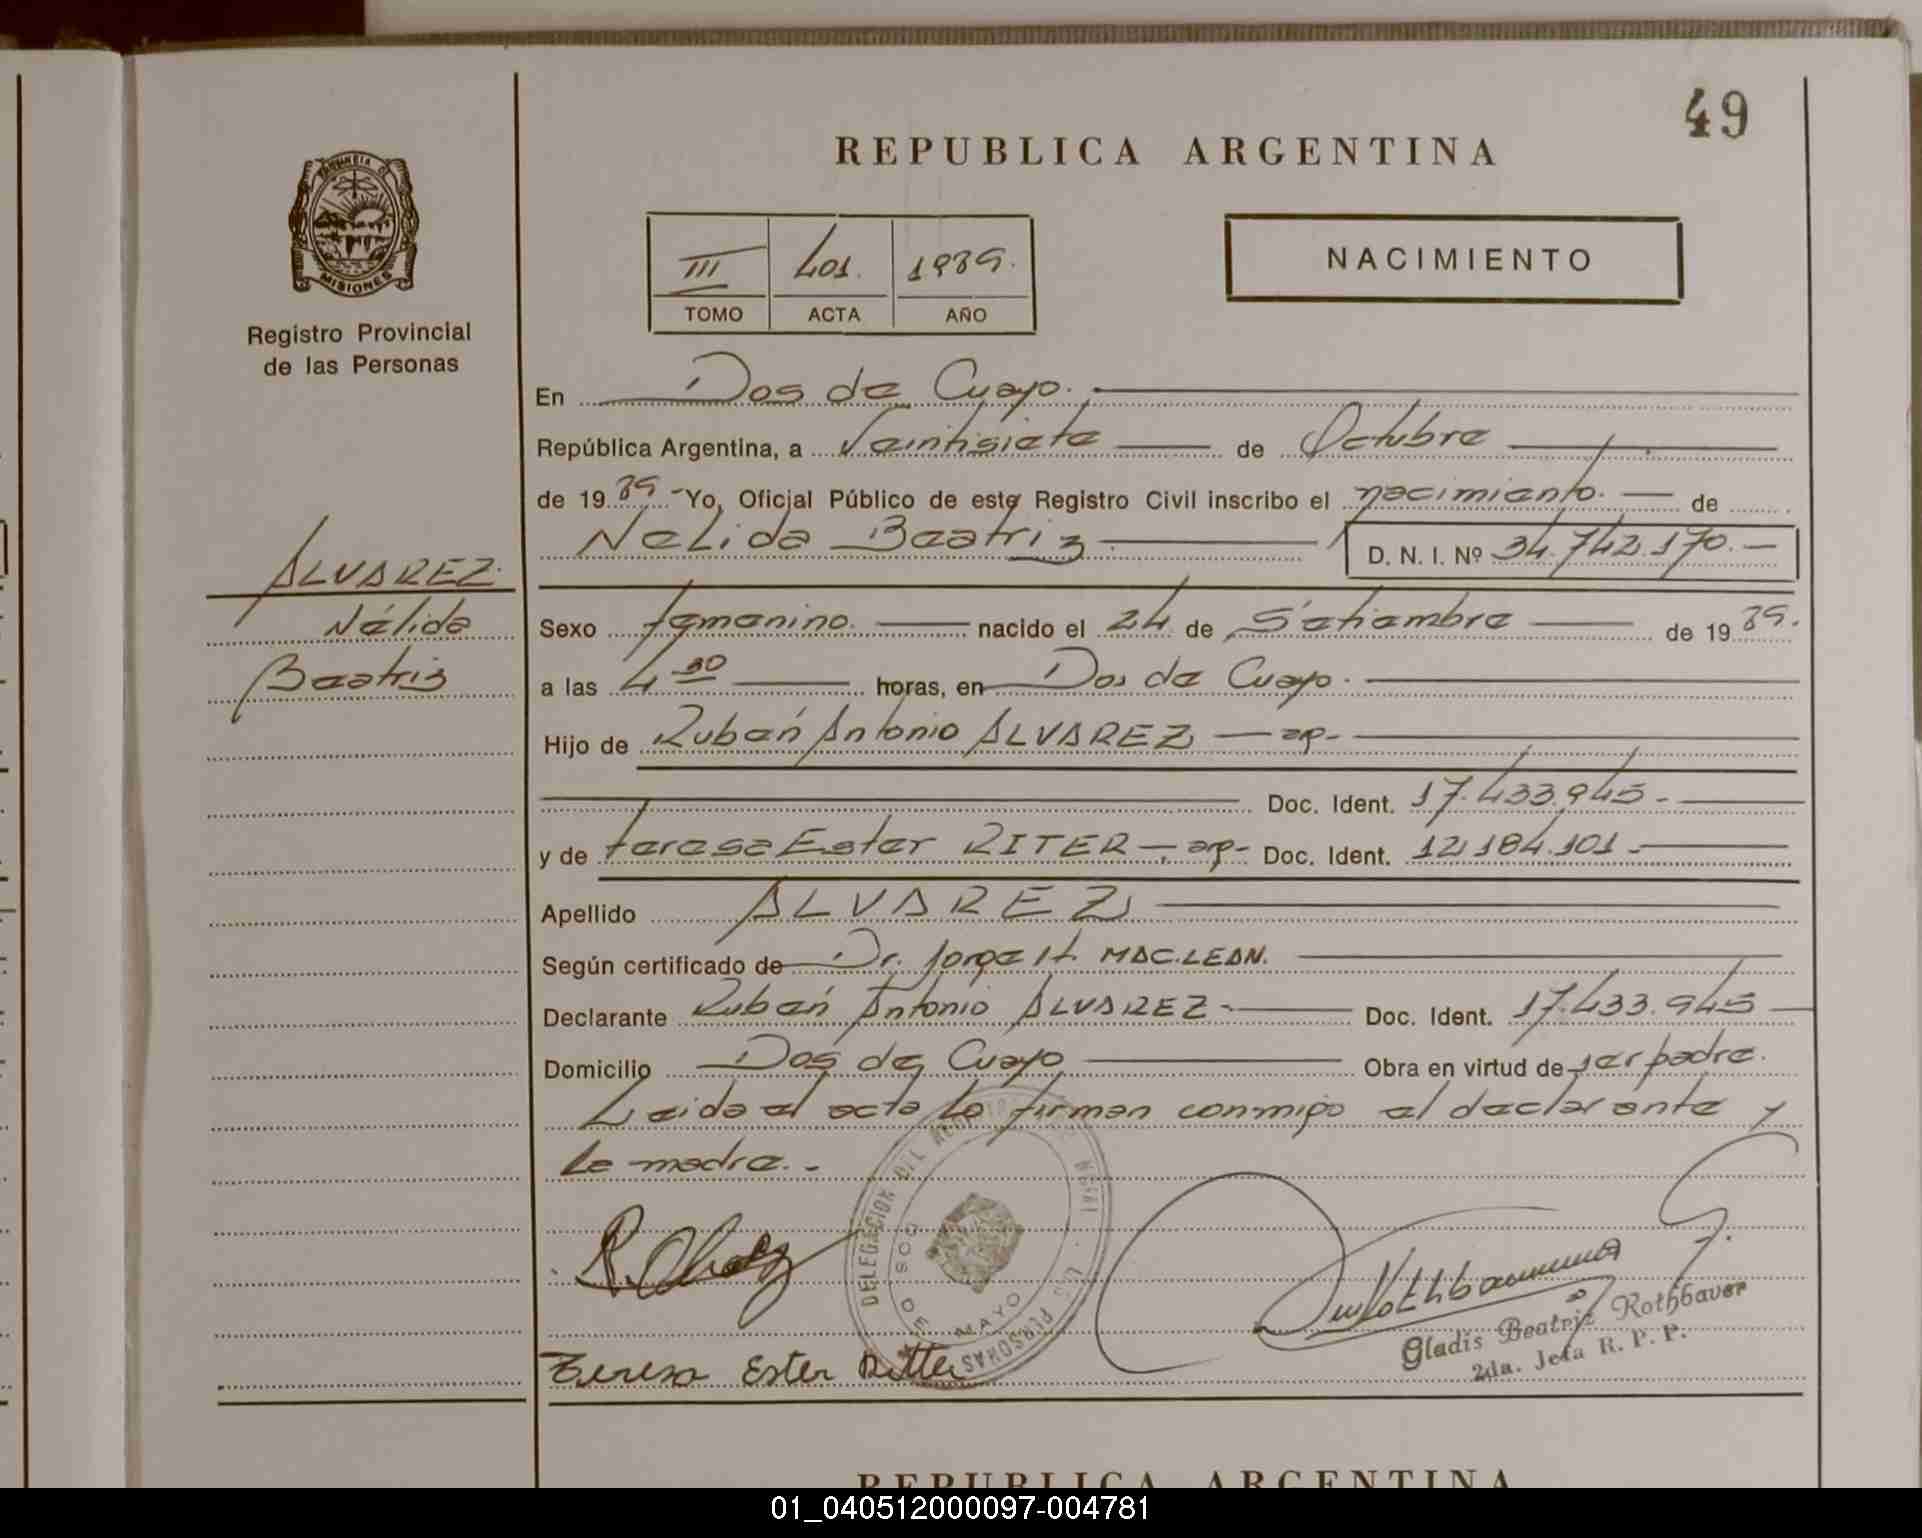 49
REPUBLICA ARGENTINA
PROVINCIA DE
MISIONES
Registro Provincial
de las Personas
III 401. 1989.
TOMO ACTA AÑO
NACIMIENTO
En Dos de Cuayo.
República Argentina, a Veintisiete de Octubre
de 19 89 - Yo, Oficial Público de este Registro Civil inscribo el nacimiento. de
Nelida Beatriz
D. N. I. Nº 34.742.170.-
ALVAREZ.
Nélida
Beatriz
Sexo femenino. nacido el 24 de Setiembre de 19 89.
a las 4 30 horas, en Dos de Cuayo.
Hijo de Rubén Antonio ALVAREZ - ap-
Doc. Ident. 17.433.945-
y de teresa Ester RITER - ap- Doc. Ident. 12.184.101-
Apellido ALVAREZ
Según certificado de Dr. Jorge H. MAC.LEAN.
Declarante Rubén Antonio ALVAREZ- Doc. Ident. 17.433.945
Domicilio Dos de Cuayo Obra en virtud de ser padre.
Leida el acta la firman conmigo el declarante y
la madre.-
DELEGACION DEL PERSONAS
DOS DE MAYO
Teresa Ester Ritter
Gladis Beatriz Rothbauer
2da. Jefa R. P. P.
REPUBLICA ARGENTINA
01_040512000097-004781